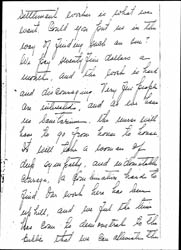 Settlement worker is what we
want. Could you put us in the
way of finding such an one?
We pay seventy five dollars a
month, and the work is hard
and discouraging. Very few people
are interested, and as we have
no Sanitarium the nurse will
have to go from house to house
It will take a woman of
deep sympathy, and indomitable
courage, a combination hard to
find. Our work here has been
uphill, and we feel the time
has come to demonstrate to the
public that we can alleviate the